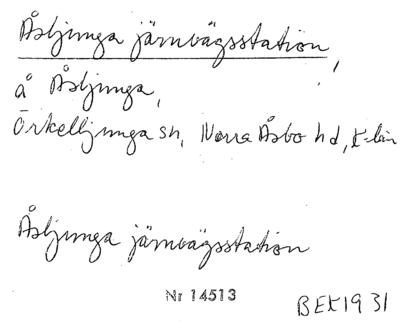 Åsljunga järnvägsstation,
å Åsljunga,
Örkelljunga sn, Norra Åsbo hd, L-län
Åsljunga järnvägsstation
Nr 14513
BEK1931